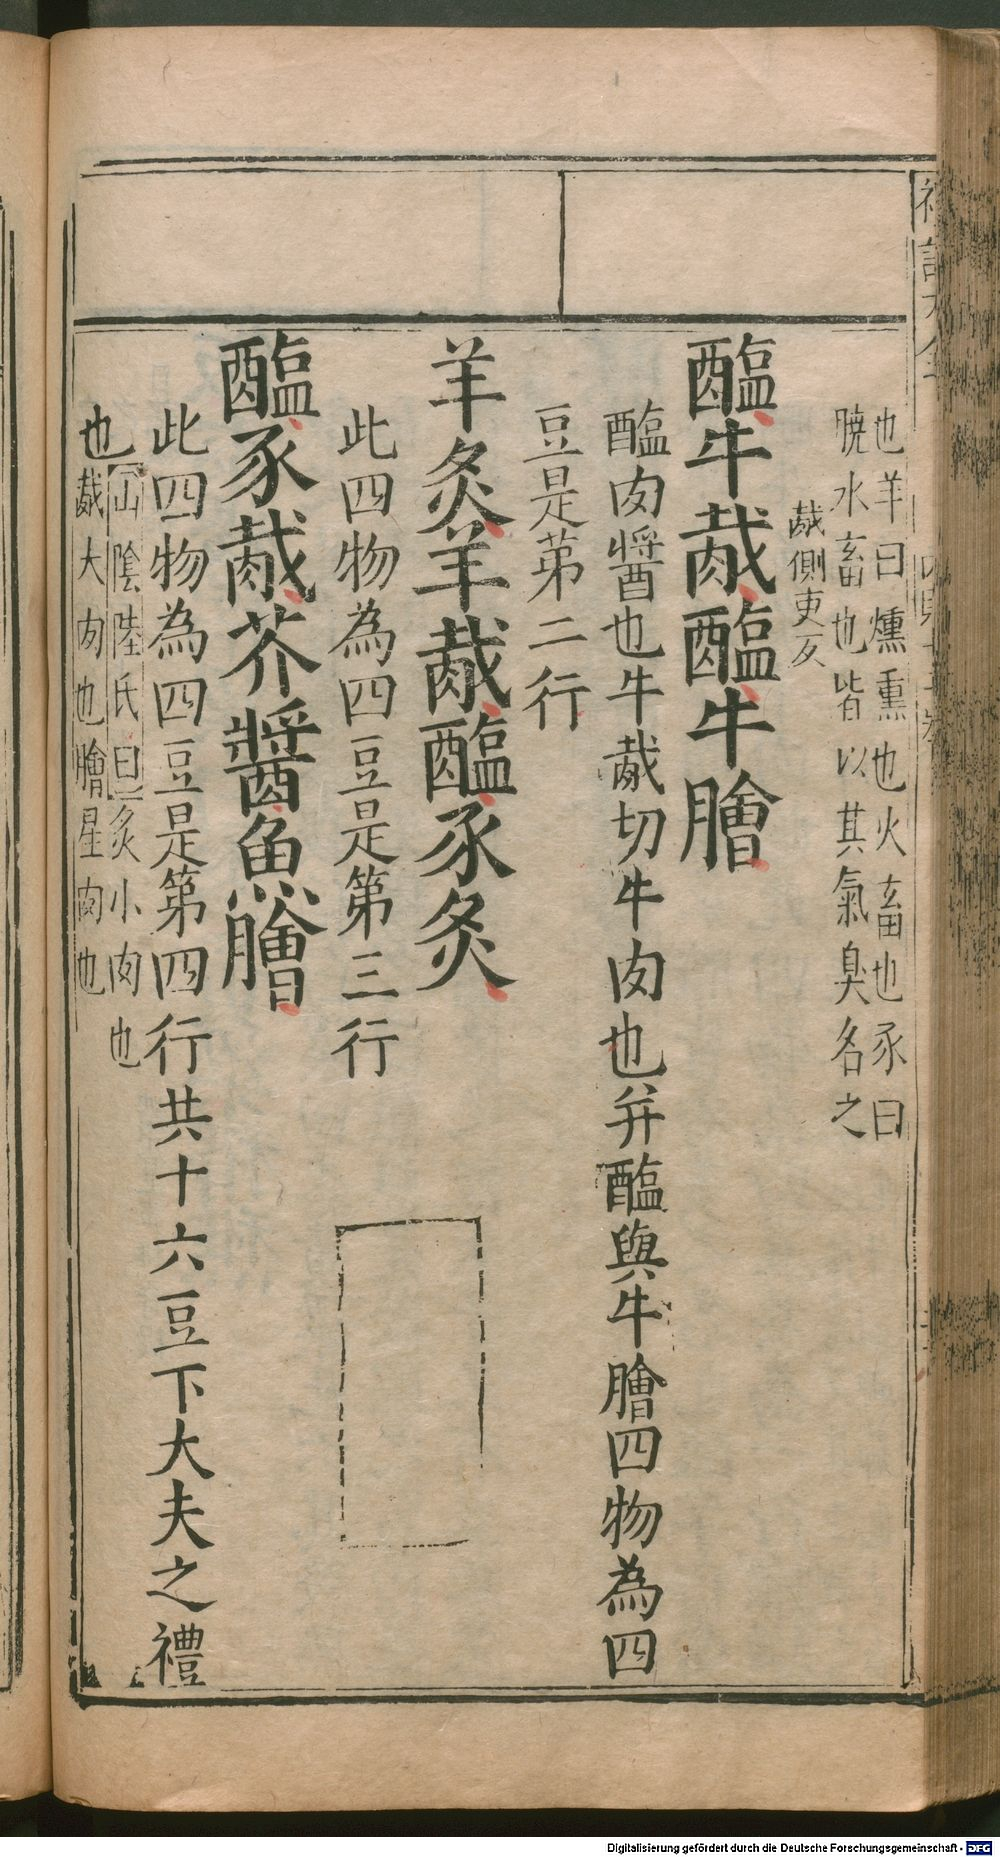 也羊曰燻熏也火畜也豕曰
膮水畜也皆以其氣臭名之
胾側吏反
醢牛胾醢牛膾
醢肉醬也牛胾切牛肉也并醢與牛膾四物為四
豆是第二行
羊炙羊胾醢豕炙
此四物為四豆是第三行
醢豕胾芥醬魚膾
此四物為四豆是第四行共十六豆下大夫之禮
也
山陰陸氏曰炙小肉也
胾大肉也膾星肉也
Digitalisierung gefördert durch die Deutsche Forschungsgemeinschaft - DFG